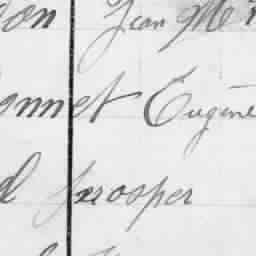 on Jean M
onnet Eugène
d Prosper